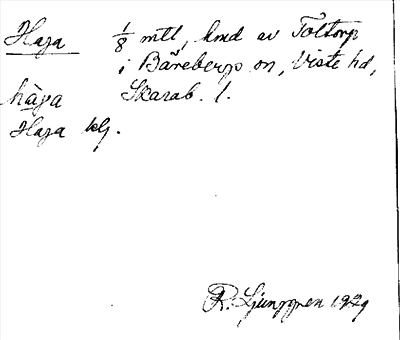 Haga 1/8 mtl, hmd av Toltorp
i Bärebergs sn, Viste hd,
hàga Skarab. l.
Haga blg.
R. Ljunggren 1929